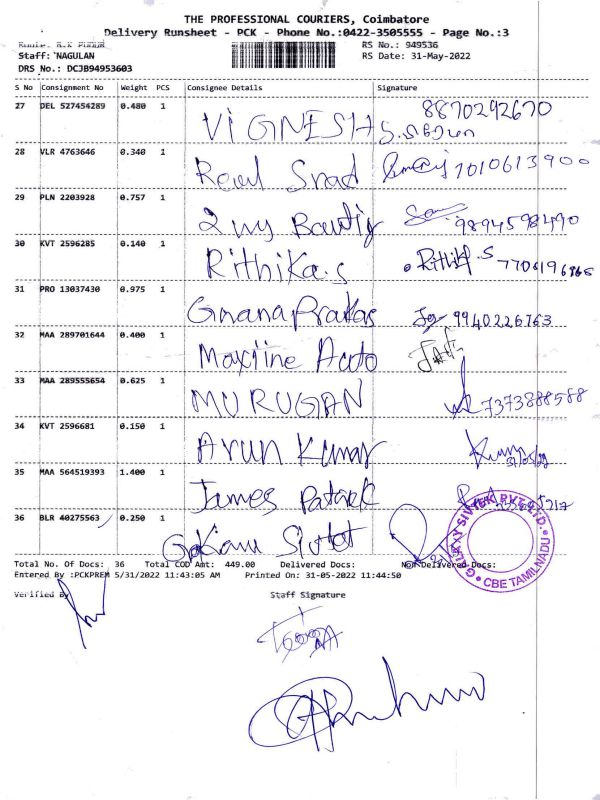 THE PROFESSIONAL COURIERS, Coimbatore
Delivery Runsheet - PCK - Phone No.:0422-3505555 - Page No.:3
RS No.: 949536
Staff: NAGULAN RS Date: 31-May-2022
DRS No.: DCJB94953603
S No Consignment No Weight PCS Consignee Details Signature
27 DEL 527454289 0.480 1 VIGNESH 8870292670
28 VLR 4763646 0.340 1 7010613900
29 PLN 2203928 0.757 1
30 KVT 2596285 0.140 1 Rithika.s Rithik.S
31 PRO 13037430 0.975 1 Gnana Prakas 9940226763
32 MAA 289701644 0.400 1 Auto
33 MAA 289555654 0.625 1 MURUGAN 7373888588
34 KVT 2596681 0.150 1 Arun Kumar
35 MAA 564519393 1.400 1 James Patrick
36 BLR 40275563 0.250 1
GALAXY SIVTEK PVT. LTD. CBE TAMILNADU
Total No. Of Docs: 36 Total COD Amt: 449.00 Delivered Docs: Non Delivered Docs:
Entered By :PCKPREM 5/31/2022 11:43:05 AM Printed On: 31-05-2022 11:44:50
Verified By Staff Signature